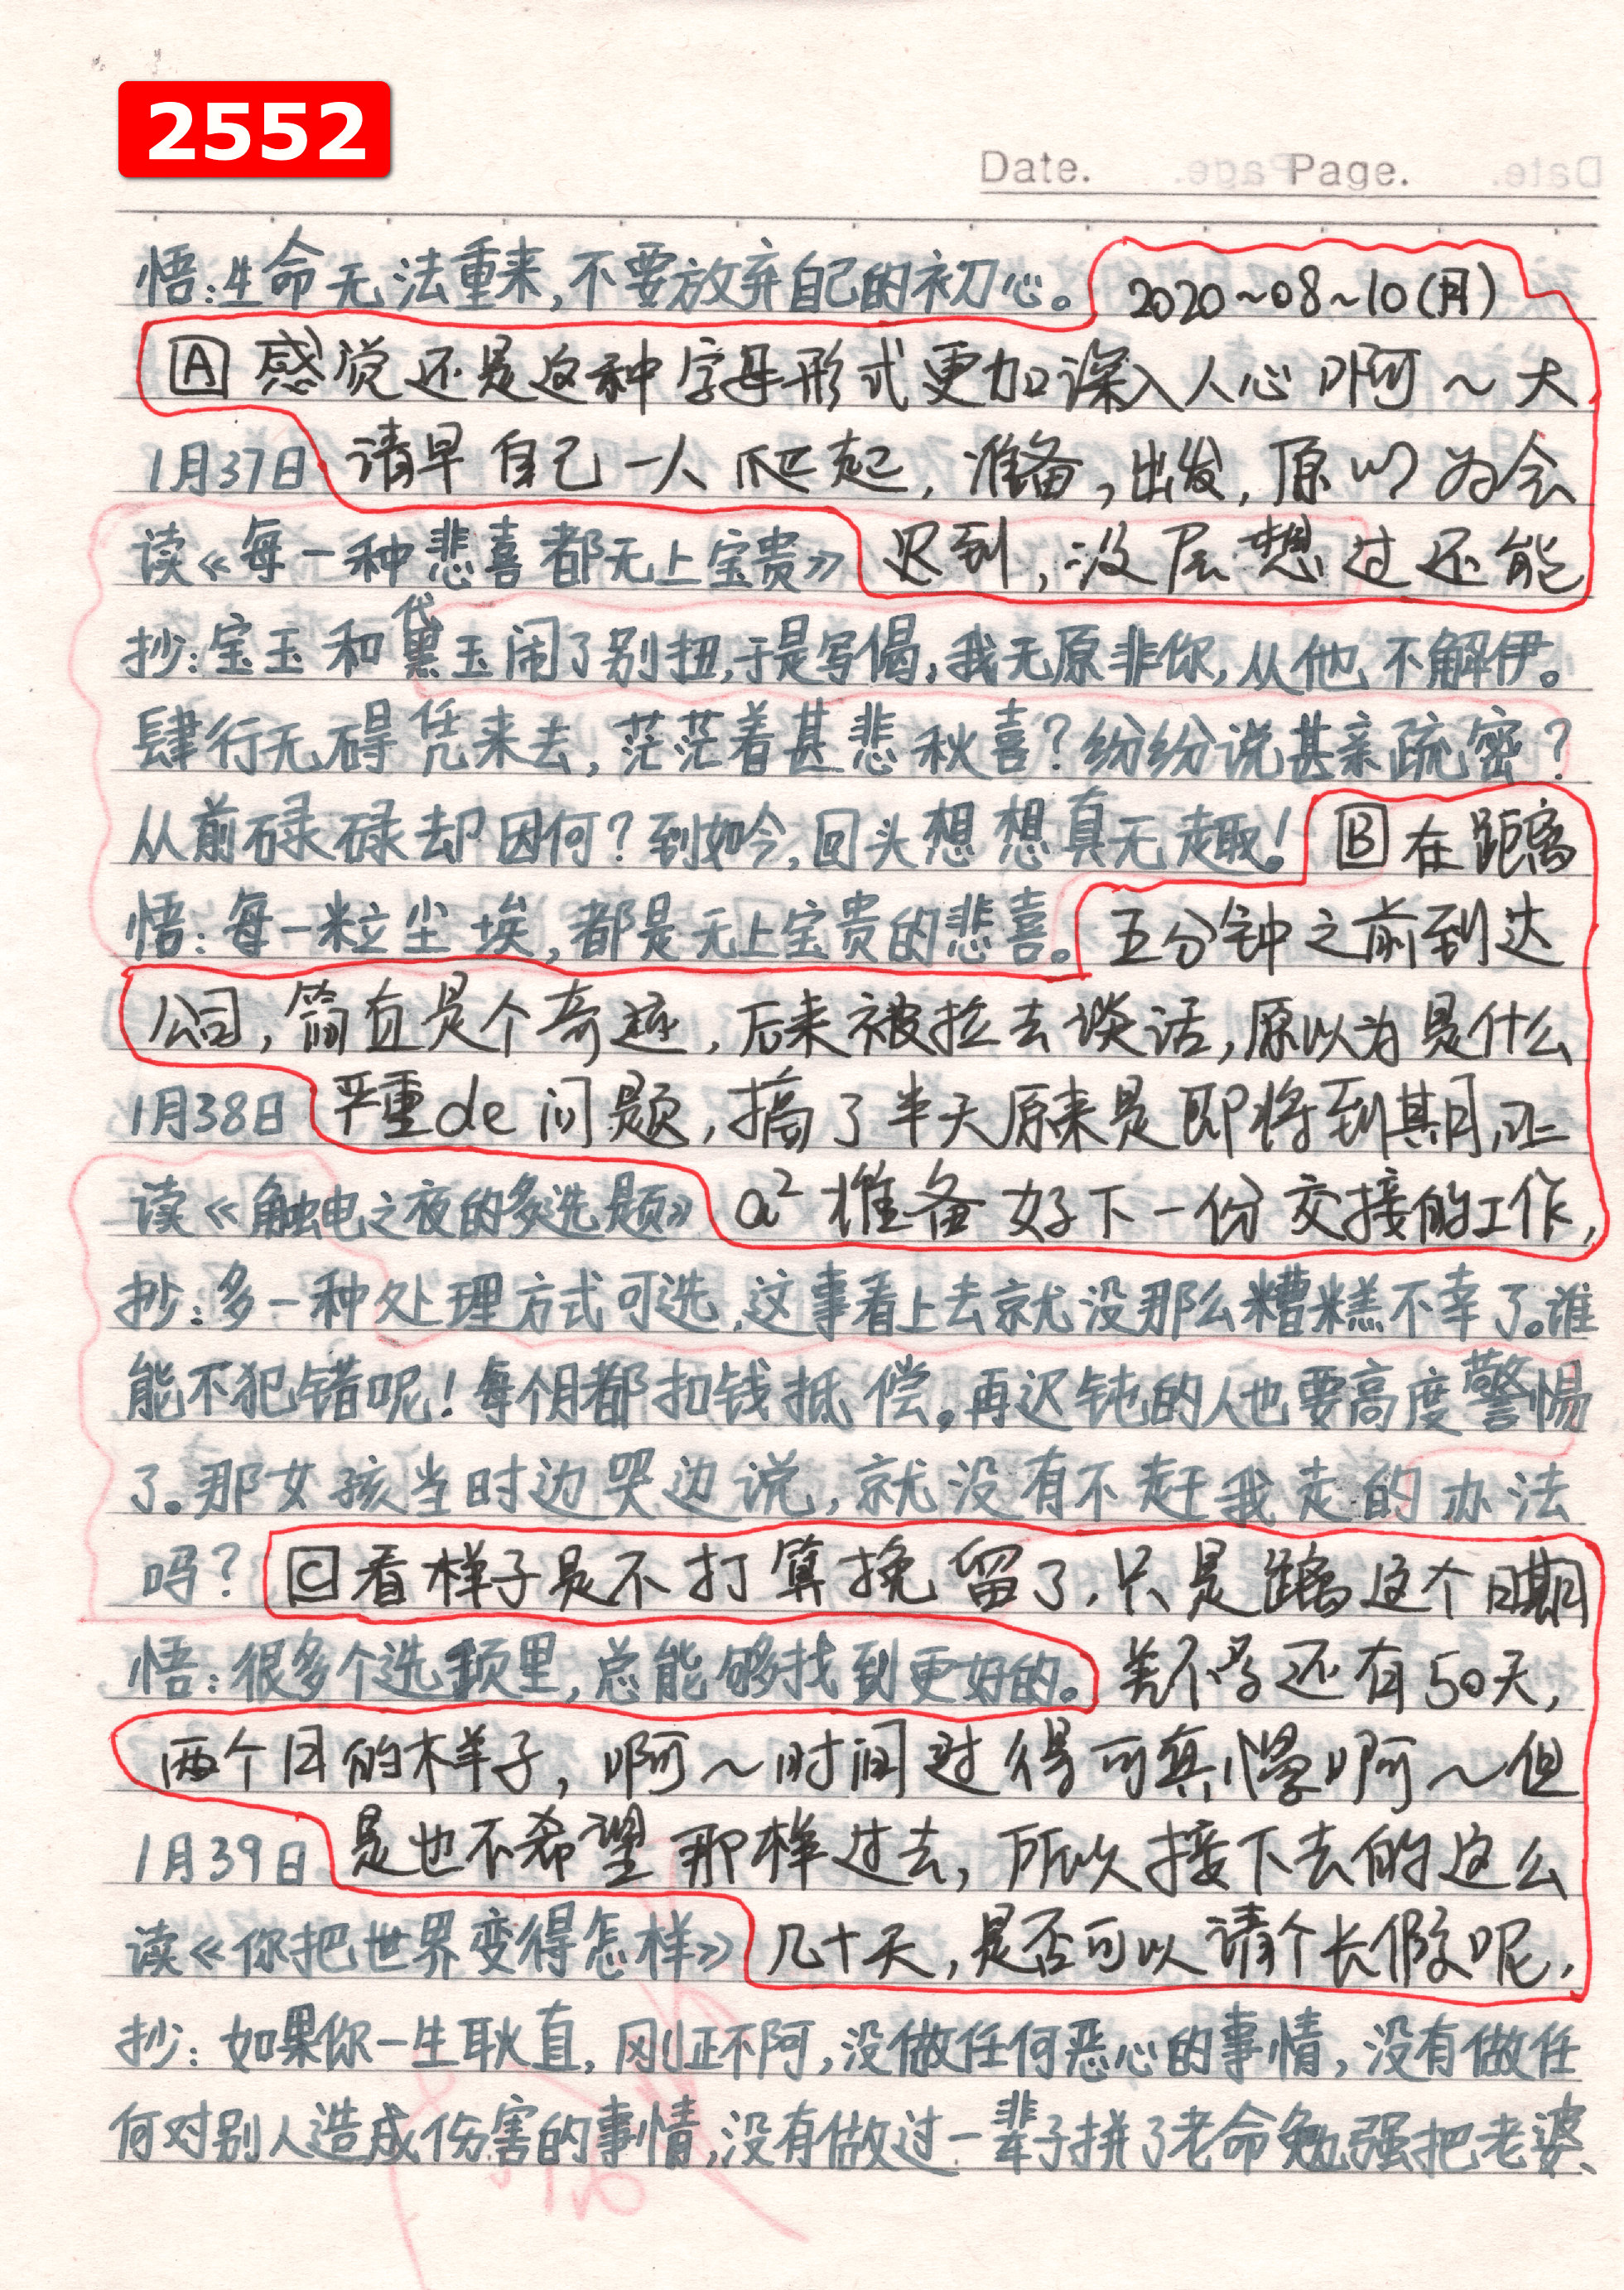 2552
Date. Page.
悟:生命无法重来,不要放弃自己的初心。 2020~08~10(月)
A 感觉还是这种字母形式更加深入人心啊~大
1月37日 请早自己一人爬起,准备,出发,原以为会
读《每一种悲喜都无上宝贵》 迟到,没层想过还能
代
抄:宝玉和黛玉闹了别扭,于是写偈,我无原非你,从他不解伊。
肆行无碍凭来去,茫茫着甚悲秋喜?纷纷说甚亲疏密?
从前碌碌却因何?到如今,回头想想真无趣! B 在距离
悟:每一粒尘埃,都是无上宝贵的悲喜。 五分钟之前到达
公司,简直是个奇迹,后来被拉去谈话,原以为是什么
1月38日 严重de问题,搞了半天原来是即将到期,让
读《触电之夜的多选题》 a² 准备好下一份交接的工作,
抄:多一种处理方式可选,这事看上去就没那么糟糕不幸了。谁
能不犯错呢!每个月都扣钱抵偿。再迟钝的人也要高度警惕
了。那女孩当时边哭边说,就没有不赶我走的办法
吗? C 看样子是不打算挽留了,只是距离这个日期
悟:很多个选项里,总能够找到更好的。 差不多还有50天,
两个月的样子,啊~时间过得可真慢啊~但
1月39日 是也不希望那样过去,所以接下去的这么
读《你把世界变得怎样》 几十天,是否可以请个长假呢,
抄:如果你一生耿直,刚正不阿,没做任何恶心的事情,没有做任
何对别人造成伤害的事情,没有做过一辈子拼了老命勉强把老婆、